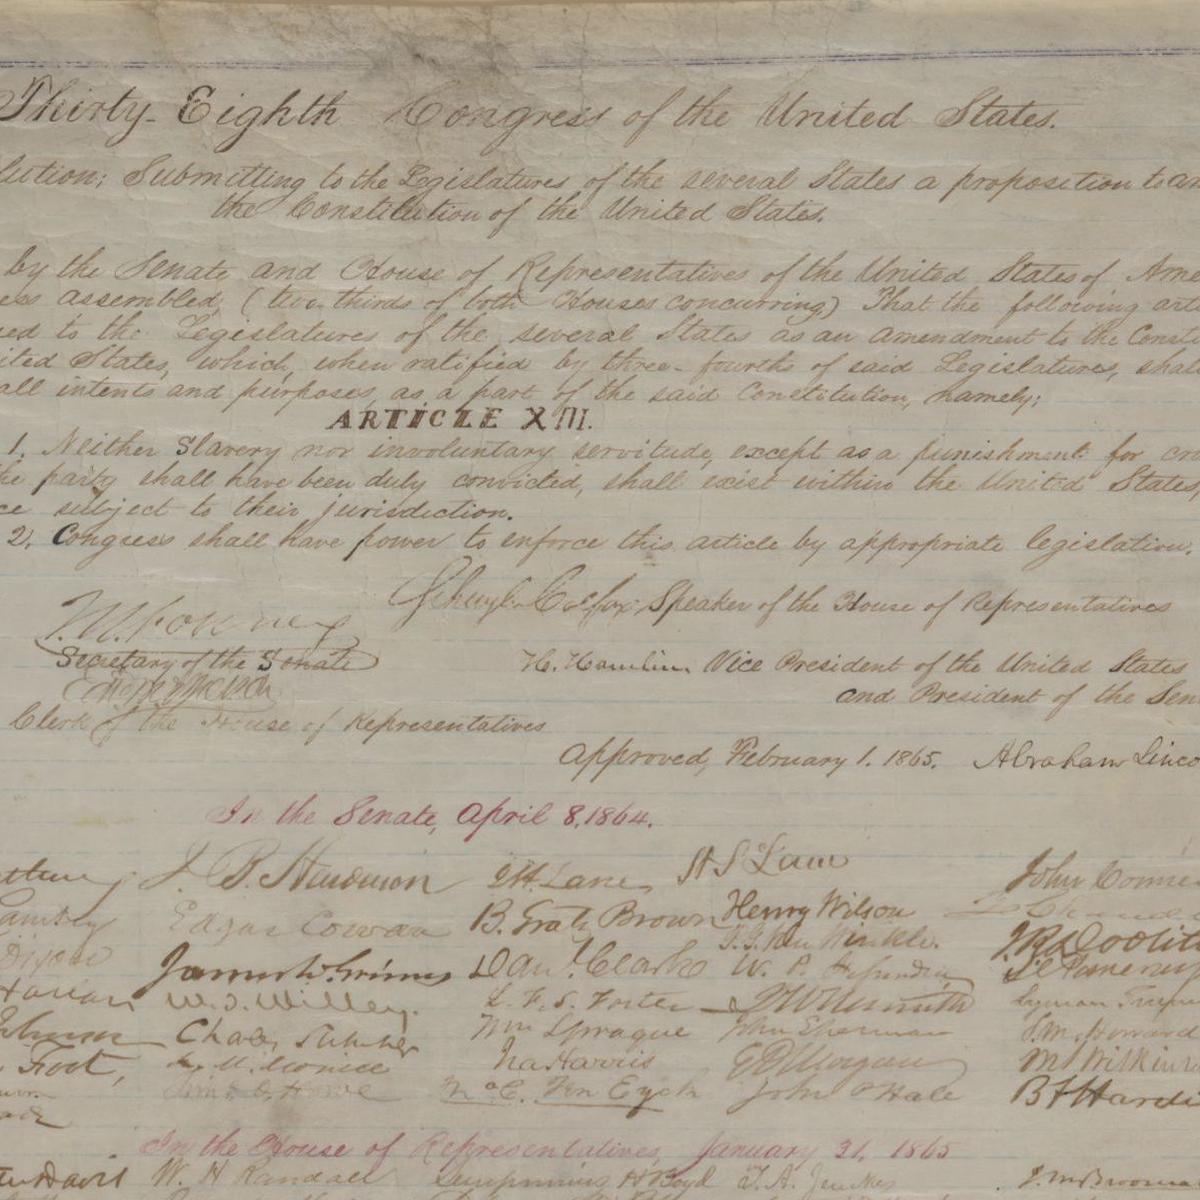 Thirty-Eighth Congress of the United States.
lution; Submitting to the Legislatures of the several States a proposition to am
the Constitution of the United States.
by the Senate and House of Representatives of the United States of Ame
ess assembled, (two thirds of both Houses concurring) That the following arti
sed to the Legislatures of the several States as an amendment to the Constit
ited States, which, when ratified by three-fourths of said Legislatures, shall
all intents and purposes, as a part of the said Constitution, namely;
ARTICLE XIII.
1. Neither Slavery nor involuntary servitude, except as a punishment for cri
he party shall have been duly convicted, shall exist within the United States,
ce subject to their jurisdiction.
2. Congress shall have power to enforce this article by appropriate legislation.
Schuyler Colfax Speaker of the House of Representatives
J.W. Forney
Secretary of the Senate
H. Hamlin Vice President of the United States
and President of the Sen
Clerk of the House of Representatives
Approved, February 1. 1865. Abraham Linco
In the Senate, April 8, 1864.
J. B. Henderson J.H. Lane H S Lane John Conne
Edgar Cowan B. Gratz Brown Henry Wilson
Dixon James W. Grimes Dan. Clark J.R. Doolit
Harlan W.T. Willey. L. F. S. Foster Lyman Trum
Charles Sumner Wm Sprague John Sherman J.M. Howard
Foot, Ira Harris E D Morgan M S Wilkin
Tim. O. Howe Ten Eyck John P Hale B F Hardi
In the House of Representatives, January 31, 1865
Davis W. H Randall Sempronius H Boyd T. A. Jenckes